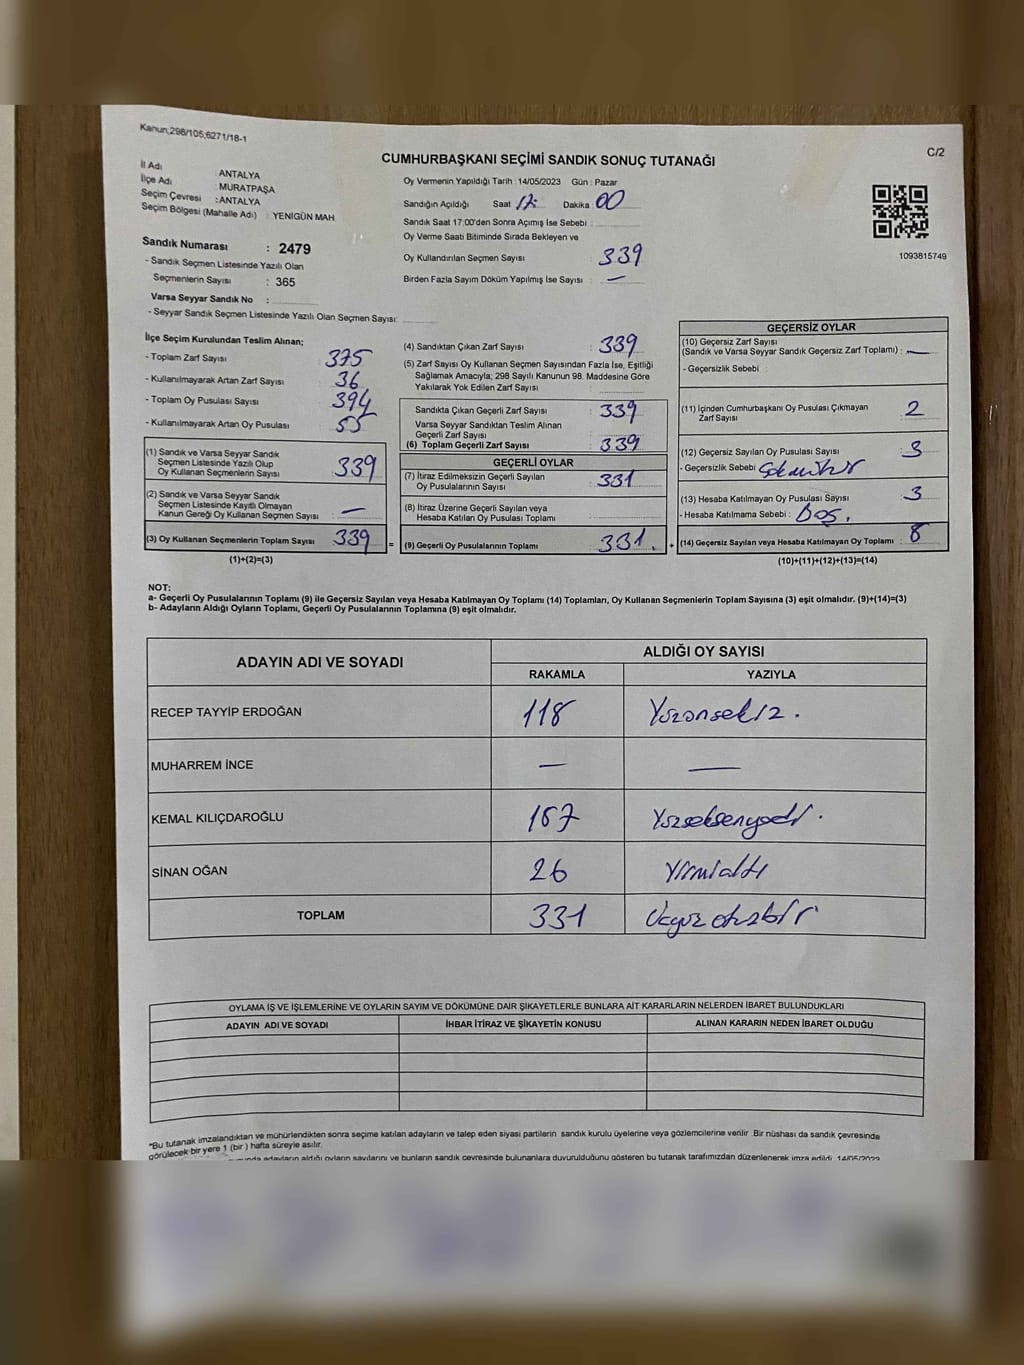 Kanun;298/105,6271/18-1
CUMHURBAŞKANI SEÇİMİ SANDIK SONUÇ TUTANAĞI
C/2
İl Adı : ANTALYA
İlçe Adı : MURATPAŞA
Seçim Çevresi : ANTALYA
Seçim Bölgesi (Mahalle Adı) : YENİGÜN MAH.
Sandık Numarası : 2479
- Sandık Seçmen Listesinde Yazılı Olan
Seçmenlerin Sayısı : 365
Varsa Seyyar Sandık No :
- Seyyar Sandık Seçmen Listesinde Yazılı Olan Seçmen Sayısı:
Oy Vermenin Yapıldığı Tarih : 14/05/2023 Gün : Pazar
Sandığın Açıldığı Saat 17: Dakika : 00
Sandık Saat 17:00'den Sonra Açımış İse Sebebi :
Oy Verme Saati Bitiminde Sırada Bekleyen ve
Oy Kullandırılan Seçmen Sayısı : 339
Birden Fazla Sayım Döküm Yapılmış İse Sayısı : —
1093815749
İlçe Seçim Kurulundan Teslim Alınan;
- Toplam Zarf Sayısı : 375
- Kullanılmayarak Artan Zarf Sayısı : 36
- Toplam Oy Pusulası Sayısı : 394
- Kullanılmayarak Artan Oy Pusulası : 55
(1) Sandık ve Varsa Seyyar Sandık
Seçmen Listesinde Yazılı Olup
Oy Kullanan Seçmenlerin Sayısı : 339
(2) Sandık ve Varsa Seyyar Sandık
Seçmen Listesinde Kayıtlı Olmayan
Kanun Gereği Oy Kullanan Seçmen Sayısı : —
(3) Oy Kullanan Seçmenlerin Toplam Sayısı : 339
(1)+(2)=(3)
=
(4) Sandıktan Çıkan Zarf Sayısı : 339
(5) Zarf Sayısı Oy Kullanan Seçmen Sayısından Fazla İse, Eşitliği
Sağlamak Amacıyla, 298 Sayılı Kanunun 98. Maddesine Göre
Yakılarak Yok Edilen Zarf Sayısı :
Sandıkta Çıkan Geçerli Zarf Sayısı : 339
Varsa Seyyar Sandıktan Teslim Alınan
Geçerli Zarf Sayısı :
(6) Toplam Geçerli Zarf Sayısı : 339
GEÇERLİ OYLAR
(7) İtiraz Edilmeksizin Geçerli Sayılan
Oy Pusulalarının Sayısı : 331
(8) İtiraz Üzerine Geçerli Sayılan veya
Hesaba Katılan Oy Pusulası Toplamı :
(9) Geçerli Oy Pusulalarının Toplamı : 331.
+
GEÇERSİZ OYLAR
(10) Geçersiz Zarf Sayısı
(Sandık ve Varsa Seyyar Sandık Geçersiz Zarf Toplamı) : —
- Geçersizlik Sebebi :
(11) İçinden Cumhurbaşkanı Oy Pusulası Çıkmayan
Zarf Sayısı : 2
(12) Geçersiz Sayılan Oy Pusulası Sayısı : 3
- Geçersizlik Sebebi :
(13) Hesaba Katılmayan Oy Pusulası Sayısı : 3
- Hesaba Katılmama Sebebi : Boş.
(14) Geçersiz Sayılan veya Hesaba Katılmayan Oy Toplamı : 8
(10)+(11)+(12)+(13)=(14)
NOT:
a- Geçerli Oy Pusulalarının Toplamı (9) ile Geçersiz Sayılan veya Hesaba Katılmayan Oy Toplamı (14) Toplamları, Oy Kullanan Seçmenlerin Toplam Sayısına (3) eşit olmalıdır. (9)+(14)=(3)
b- Adayların Aldığı Oyların Toplamı, Geçerli Oy Pusulalarının Toplamına (9) eşit olmalıdır.
ADAYIN ADI VE SOYADI
ALDIĞI OY SAYISI
RAKAMLA YAZIYLA
RECEP TAYYİP ERDOĞAN 118 Yüzonsekiz.
MUHARREM İNCE — —
KEMAL KILIÇDAROĞLU 187 Yüzseksenyedi.
SİNAN OĞAN 26 Yirmialtı
TOPLAM 331 Üçyüz otuzbir
OYLAMA İŞ VE İŞLEMLERİNE VE OYLARIN SAYIM VE DÖKÜMÜNE DAİR ŞİKAYETLERLE BUNLARA AİT KARARLARIN NELERDEN İBARET BULUNDUKLARI
ADAYIN ADI VE SOYADI İHBAR İTİRAZ VE ŞİKAYETİN KONUSU ALINAN KARARIN NEDEN İBARET OLDUĞU
*Bu tutanak imzalandıktan ve mühürlendikten sonra seçime katılan adayların ve talep eden siyasi partilerin sandık kurulu üyelerine veya gözlemcilerine verilir .Bir nüshası da sandık çevresinde
görülecek bir yere 1 (bir ) hafta süreyle asılır.
adayların aldığı oyların sayılarını ve bunların sandık çevresinde bulunanlara duyurulduğunu gösteren bu tutanak tarafımızdan düzenlenerek imza edildi. 14/05/2023